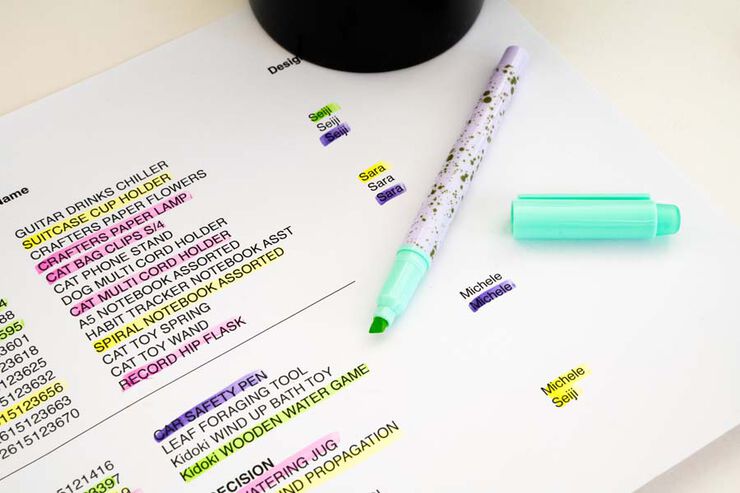 Name
GUITAR DRINKS CHILLER
SUITCASE CUP HOLDER
CRAFTERS PAPER FLOWERS
CRAFTERS PAPER LAMP
CAT BAG CLIPS S/4
CAT PHONE STAND
DOG MULTI CORD HOLDER
CAT MULTI CORD HOLDER
A5 NOTEBOOK ASSORTED
HABIT TRACKER NOTEBOOK ASST
SPIRAL NOTEBOOK ASSORTED
CAT TOY SPRING
CAT TOY WAND
RECORD HIP FLASK
CAR SAFETY PEN
LEAF FORAGING TOOL
Kidoki WIND UP BATH TOY
Kidoki WOODEN WATER GAME
Desig
Seiji
Seiji
Seiji
Sara
Sara
Sara
Michele
Michele
Michele
Seiji
4
88
595
3601
23618
123625
5123632
15123656
2615123663
2615123670
5121416
23397
ECISION
ATERING JUG
ND PROPAGATION